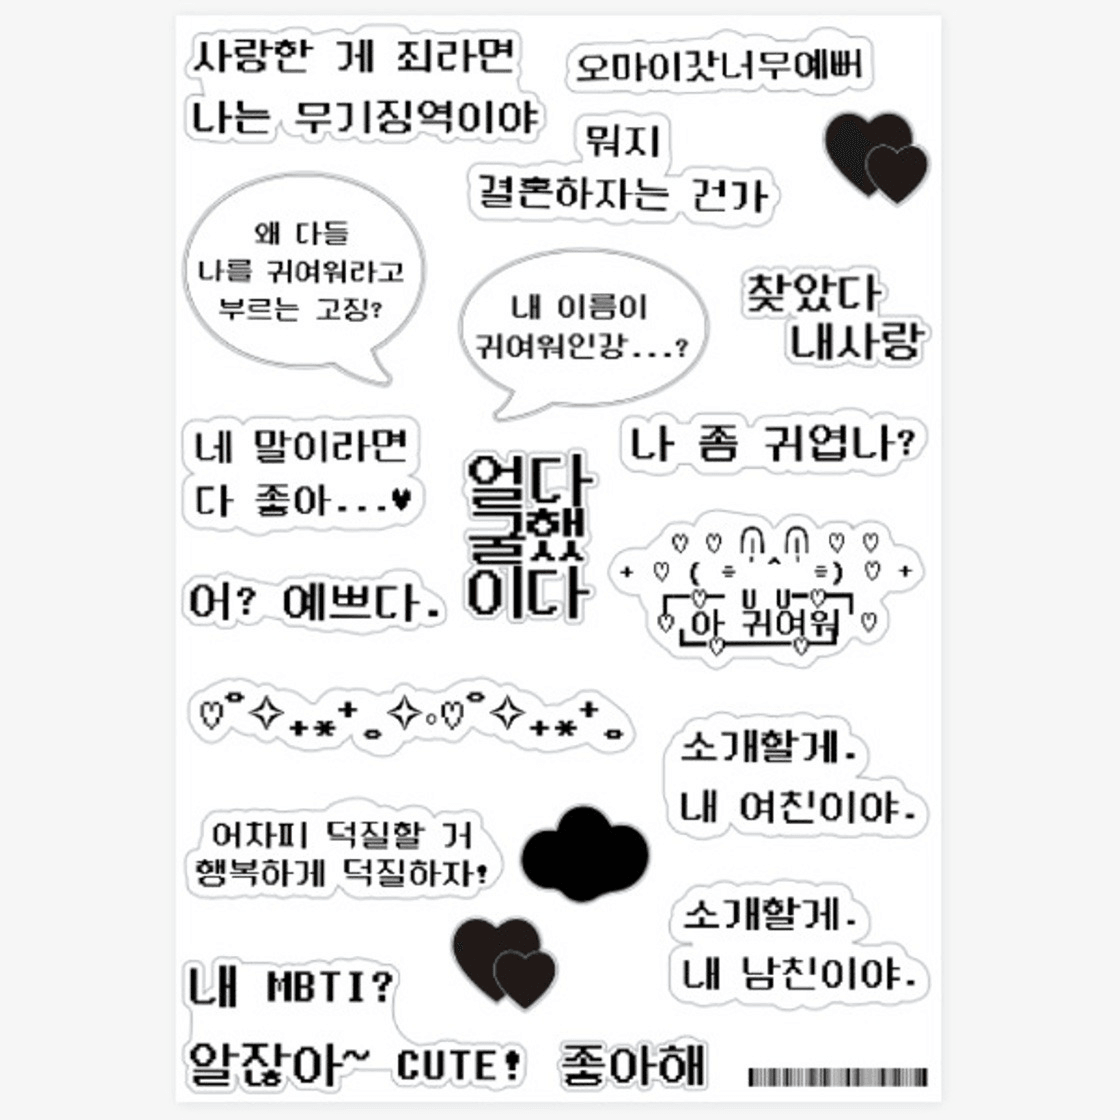 사랑한 게 죄라면
나는 무기징역이야
오마이갓너무예뻐
뭐지
결혼하자는 건가
왜 다들
나를 귀여워라고
부르는 고징?
내 이름이
귀여워인강...?
찾았다
내사랑
네 말이라면
다 좋아...♥
얼다
굴했
이다
나 좀 귀엽나?
어? 예쁘다.
아 귀여워
소개할게.
내 여친이야.
어차피 덕질할 거
행복하게 덕질하자!
소개할게.
내 남친이야.
내 MBTI?
알잖아~ CUTE!
좋아해